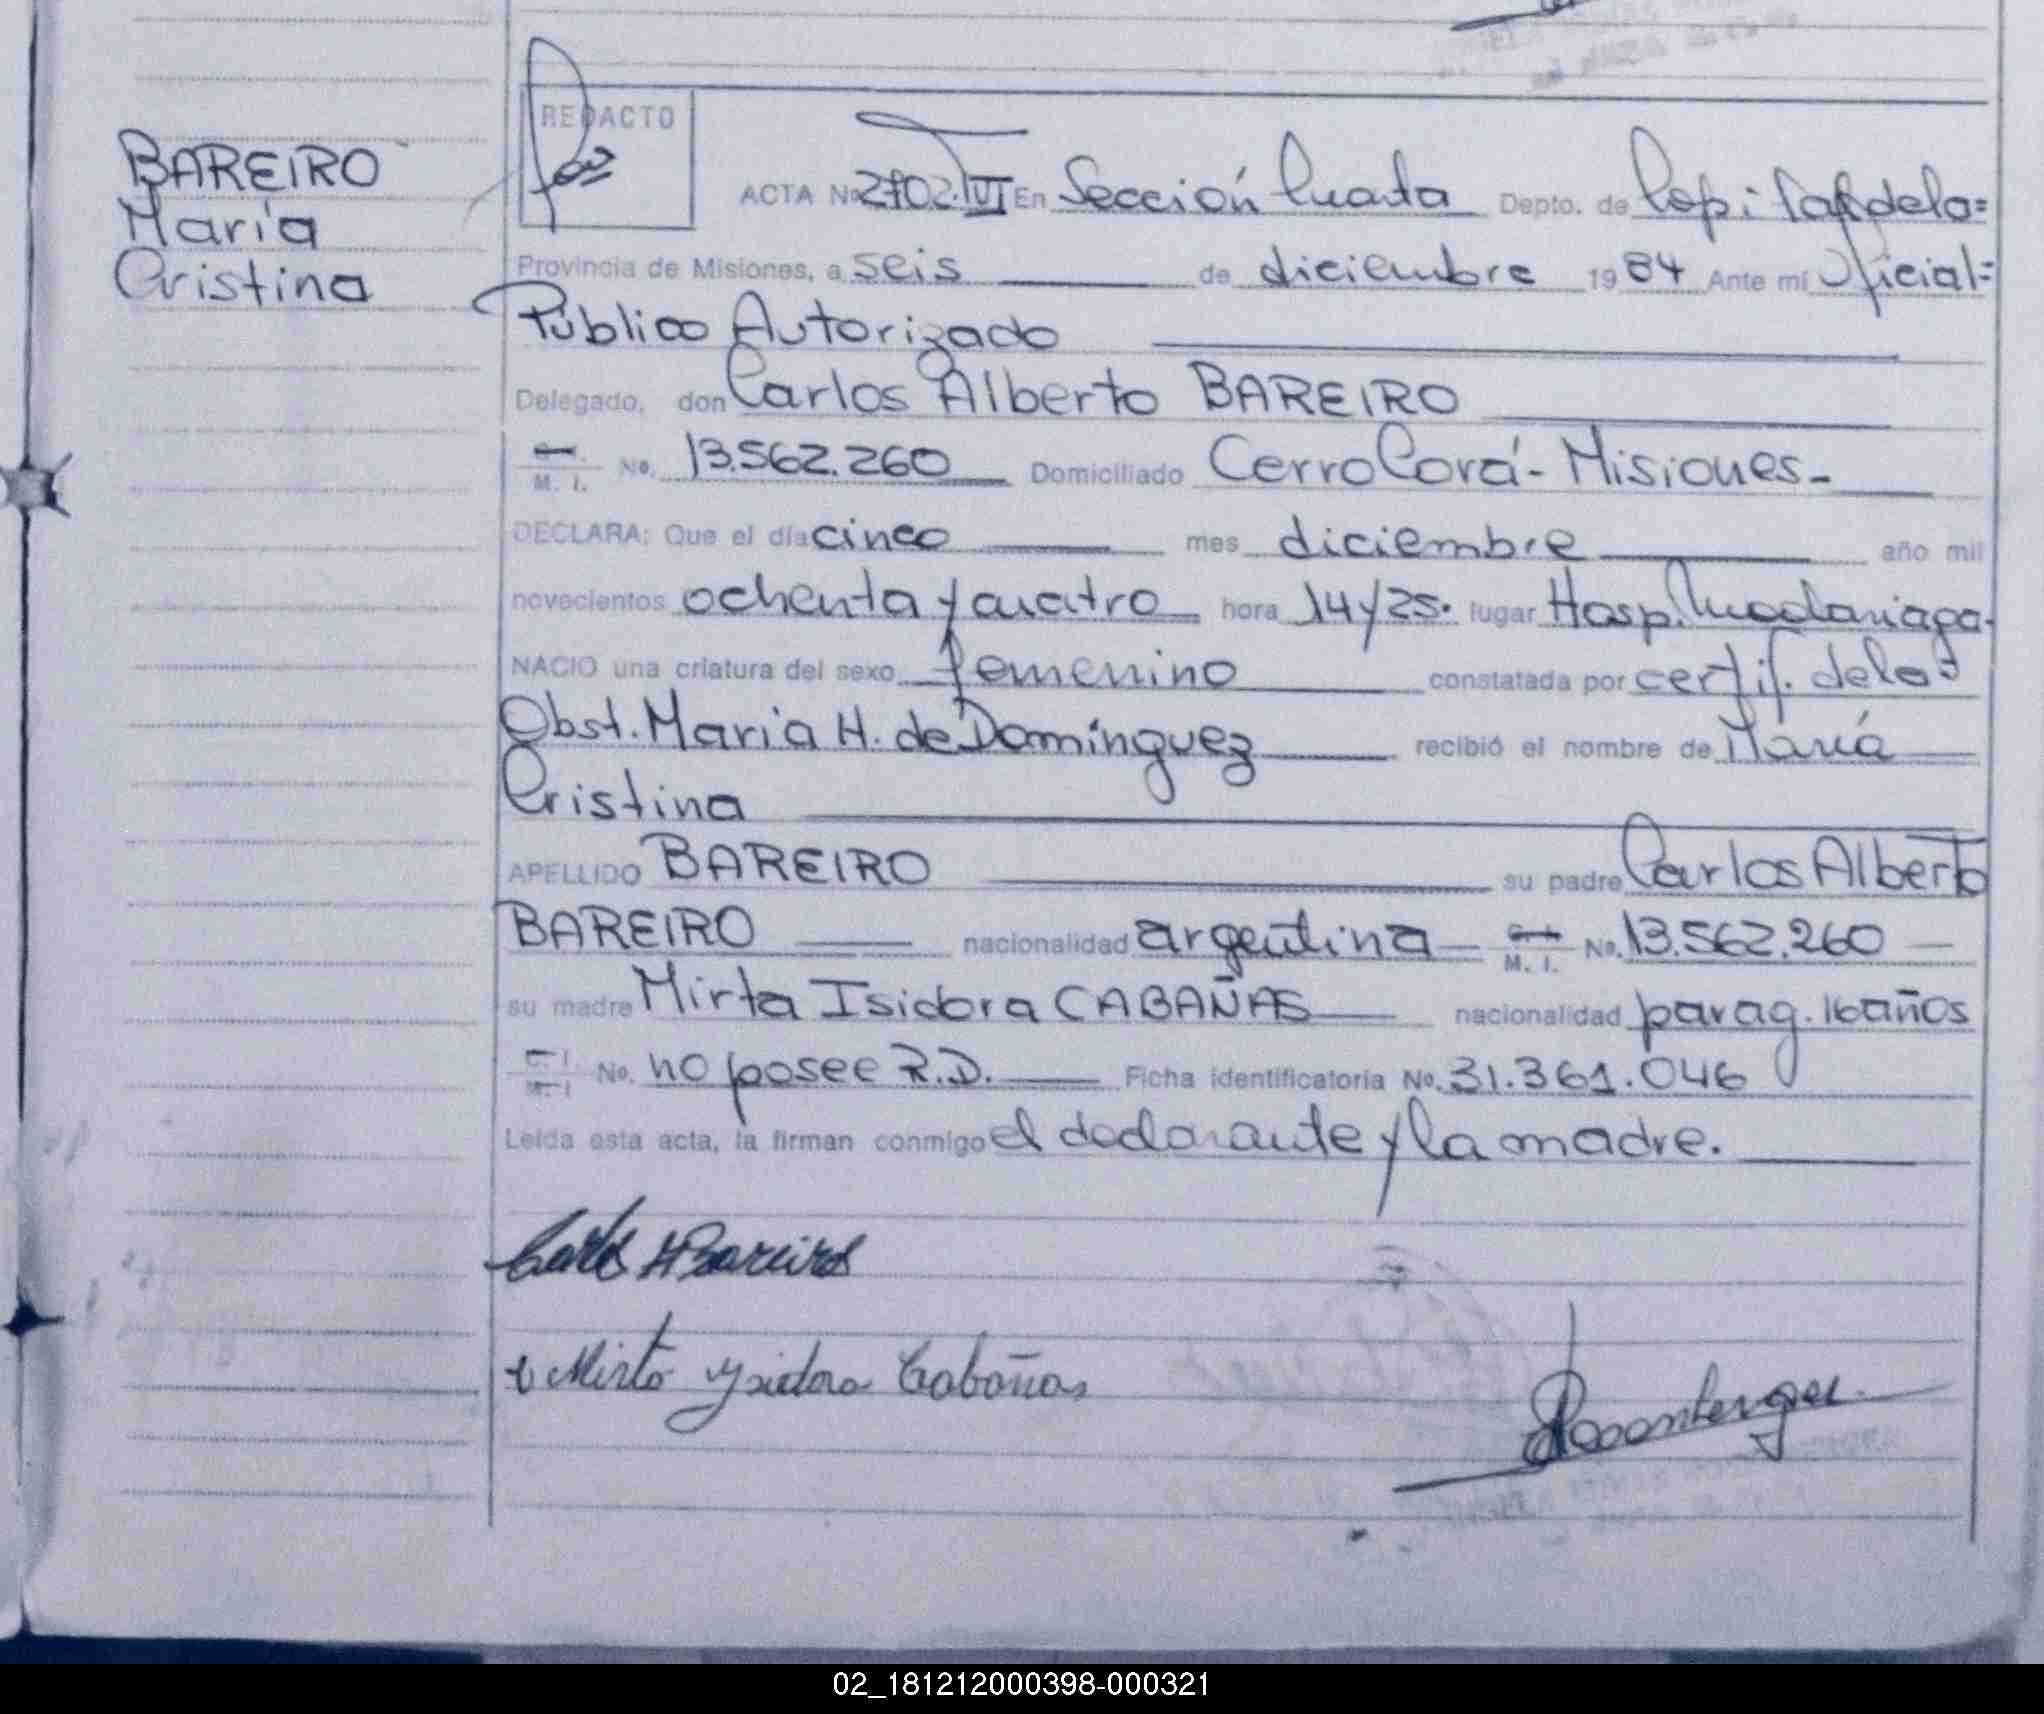 BAREIRO
María
Cristina
REDACTO
ACTA No 2702.VI En Sección Cuarta Depto. de Capital de la=
Provincia de Misiones, a seis de diciembre 1984 Ante mí Oficial=
Público Autorizado
Delegado, don Carlos Alberto BAREIRO
M. I. No. 13.562.260 Domiciliado Cerro Corá - Misiones -
DECLARA: Que el día cinco mes diciembre año mil
novecientos ochenta y cuatro hora 14 y 25. lugar Hosp. Madariaga.
NACIO una criatura del sexo femenino constatada por certif. de la=
Obst. Maria H. de Domínguez recibió el nombre de María
Cristina
APELLIDO BAREIRO su padre Carlos Alberto
BAREIRO nacionalidad argentina M. I. No. 13.562.260
su madre Mirta Isidora CABAÑAS nacionalidad parag. 16 años
C. I. M. I No. no posee R.D. Ficha identificatoria No. 31.361.046
Leída esta acta, la firman conmigo el declarante y la madre.
Carlos A Bareiro
Mirta Ysidora Cabañas
02_181212000398-000321